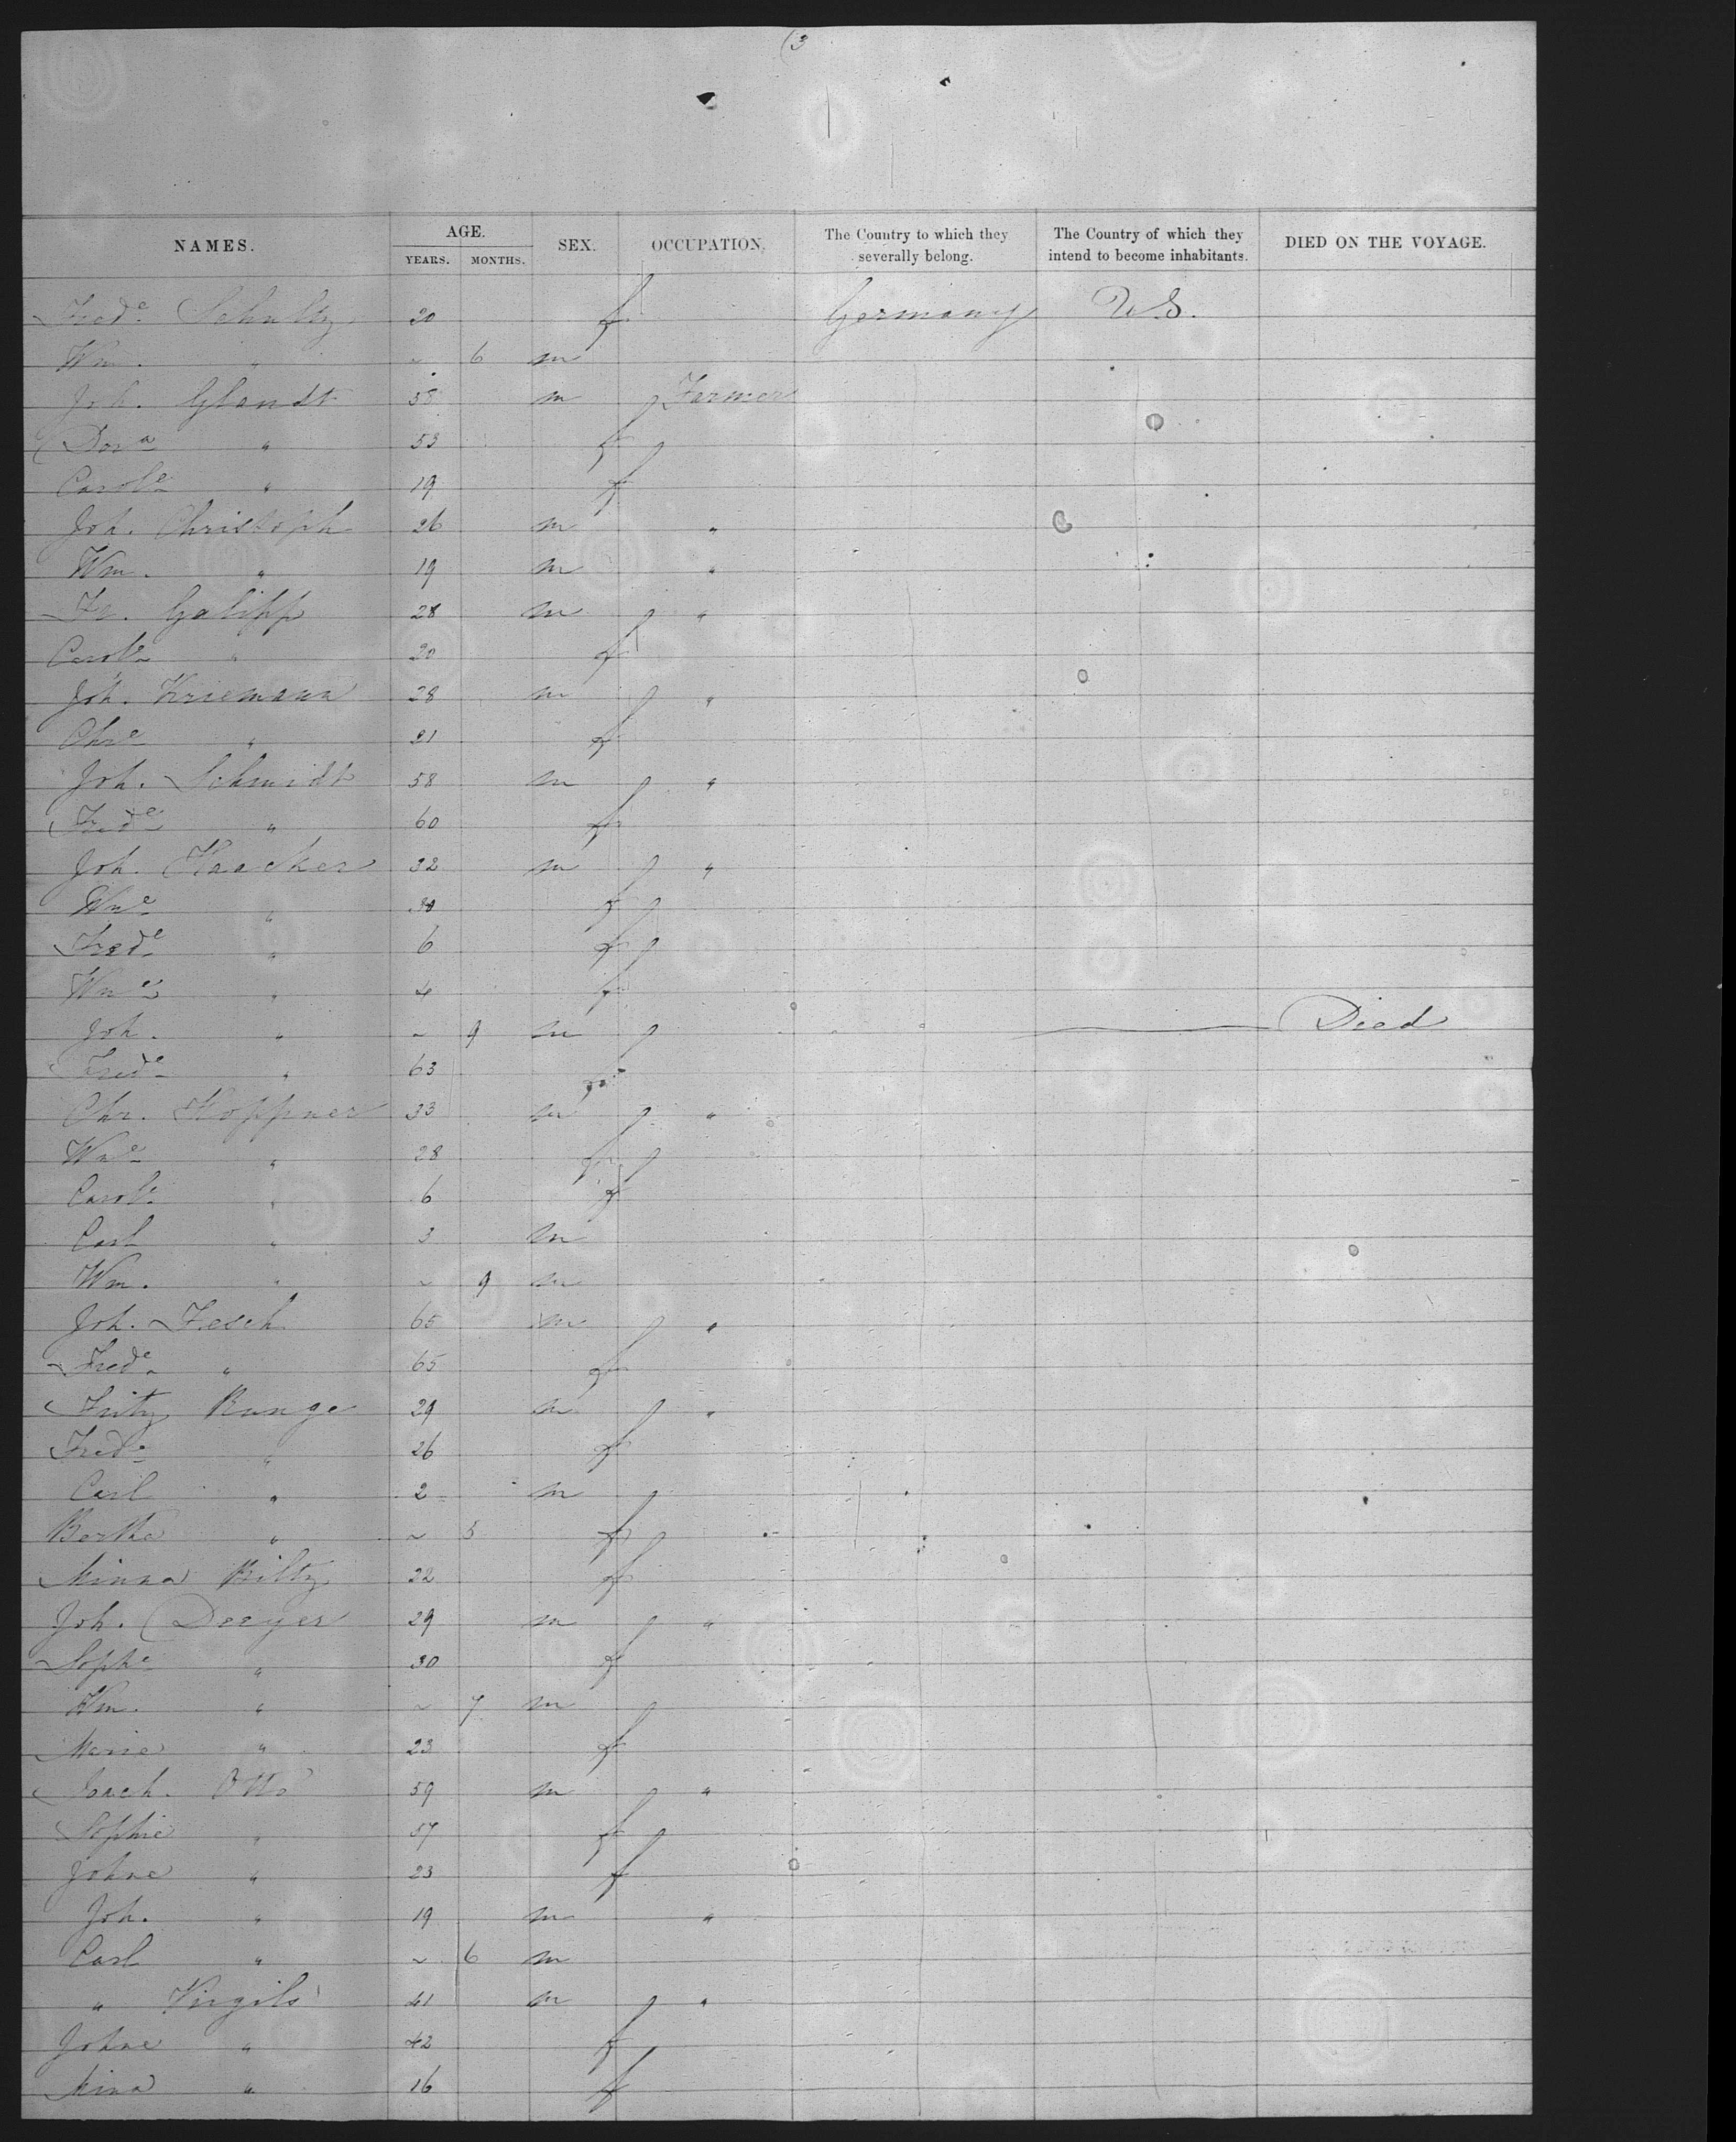 (3
NAMES. AGE. YEARS. MONTHS. SEX. OCCUPATION. The Country to which they severally belong. The Country of which they intend to become inhabitants. DIED ON THE VOYAGE.
Frede Schultz 20 f Germany U.S.
Wm. " ~ 6 m
Joh. Glandt 58 m Farmer
Dora " 53 f
Carole " 19 f
Joh. Christoph 26 m "
Wm. " 19 m "
Fr. Galipp 28 m "
Carole " 20 f
Joh. Kriemann 28 m "
Chre " 21 f
Joh. Schmidt 58 m "
Frede " 60 f
Joh. Haacker 32 m "
Wme " 30 f
Frede " 6 f
Wme " 4 f
Joh. " ~ 9 m Died
Frede " 63 f
Chr. Hoppner 33 m "
Wme " 28 f
Carole " 6 f
Carl " 3 m
Wm. " ~ 9 m
Joh. Fesch 65 m "
Frede " 65 f
Fritz Runge 29 m "
Frede " 26 f
Carl " 2 m
Bertha " ~ 5 f
Minna Biltz 22 f
Joh. Dreyer 29 m "
Sophe " 30 f
Wm. " ~ 7 m
Marie " 23 f
Joach. Otto 59 m "
Sophie " 57 f
Johne " 23 f
Joh. " 19 m "
Carl " ~ 6 m
" Virgils 41 m "
Johne " 42 f
Mina " 16 f